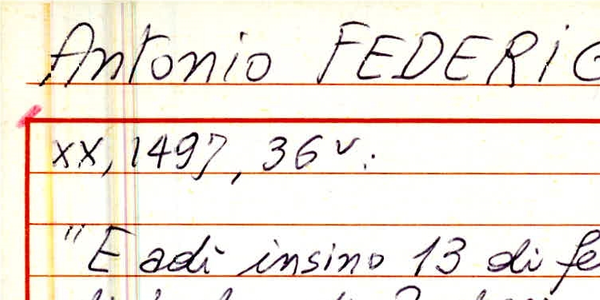 Antonio FEDERIG
xx, 1497, 36v.:
"E adì insino 13 di fe